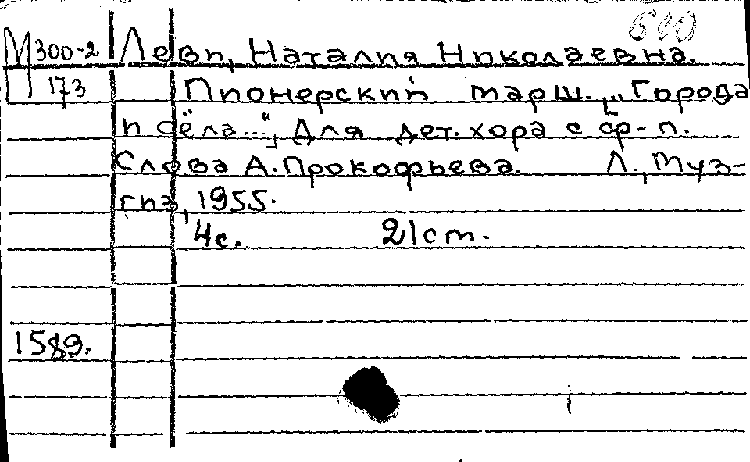 М 300-2 Леви, Наталия Николаевна.
173 Пионерский марш. „Города
и сёла...“, Для дет. хора с ф-п.
Слова А. Прокофьева. Л., Муз-
гиз, 1955.
4с. 21 cm.
1589.